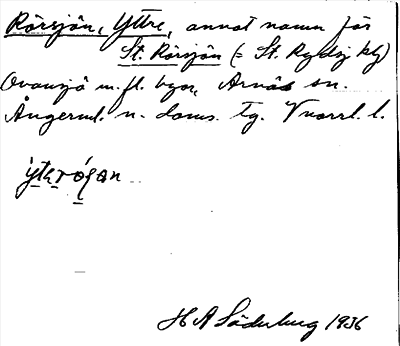 Rörsjön, Yttre, annat namn för
St. Rörsjön (= St. Rydsj kbl)
Ovansjö m. fl. byar, Arnäs sn.
Ångerml. n. doms. tg. Vnorrl. l.
H A Söderberg 1936